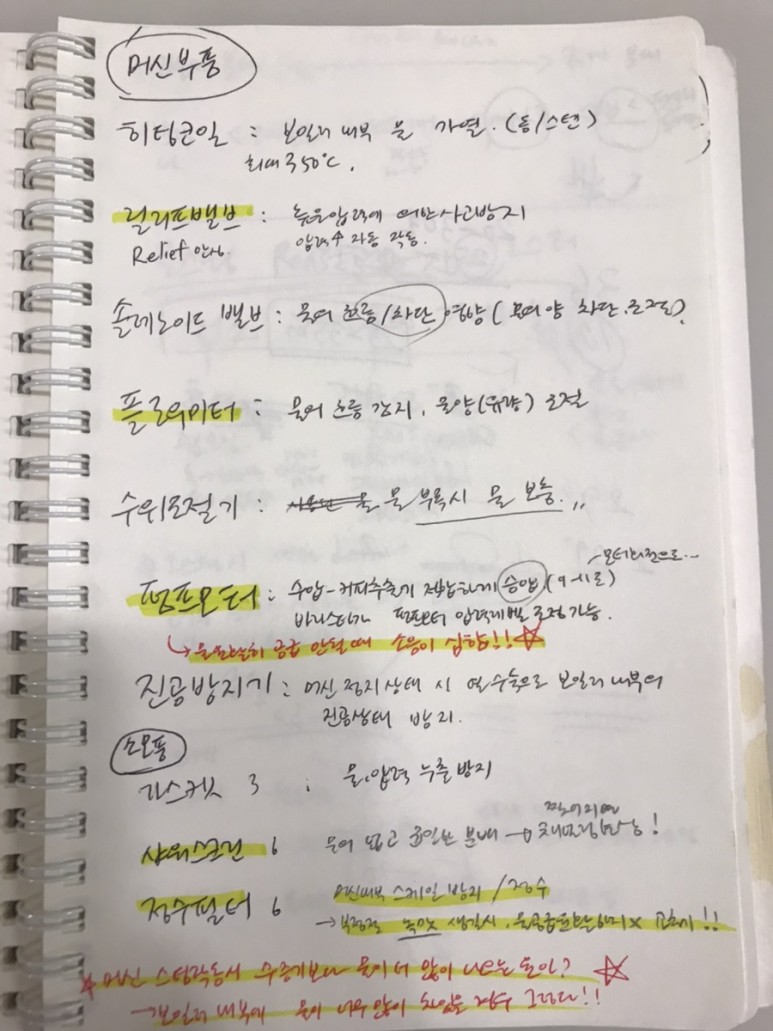 머신부품
히팅코일 : 보일러 내부 물 가열. (동/스텐)
최대 350℃.
릴리프밸브 : 높은압력에 의한 사고방지
Relief 압력↑ 자동 작동.
솔레노이드 밸브 : 물의 흐름/차단 영향 (물의 양 차단.조절?
플로우미터 : 물의 흐름 감지. 물양(유량) 조절
수위조절기 : 물 부족시 물 보충.,,
펌프모터 : 수압-커피추출기 적합하게 승압 (9-11로) 모터회전으로...
바리스타가 펌프모터 압력레벨 조정가능.
↳ 물 원활히 공급 안될때 소음이 심함!!☆
진공방지기 : 머신 정지상태 시 열수축으로 보일러 내부의
진공상태 방지.
소모품
가스켓 3 : 물,압력 누출방지
샤워스크린 6 물의 넓고 균일한 분배 →
정수필터 6 머신내부 스케일 방지 / 정수
→ 생각시. !!
☆ 머신 스팀작동시 수증기보다 물이 더 많이 나오는 동이? ☆
→ 보일러 내부에 물이 너무 많이 차있을 경우 그렇다!!